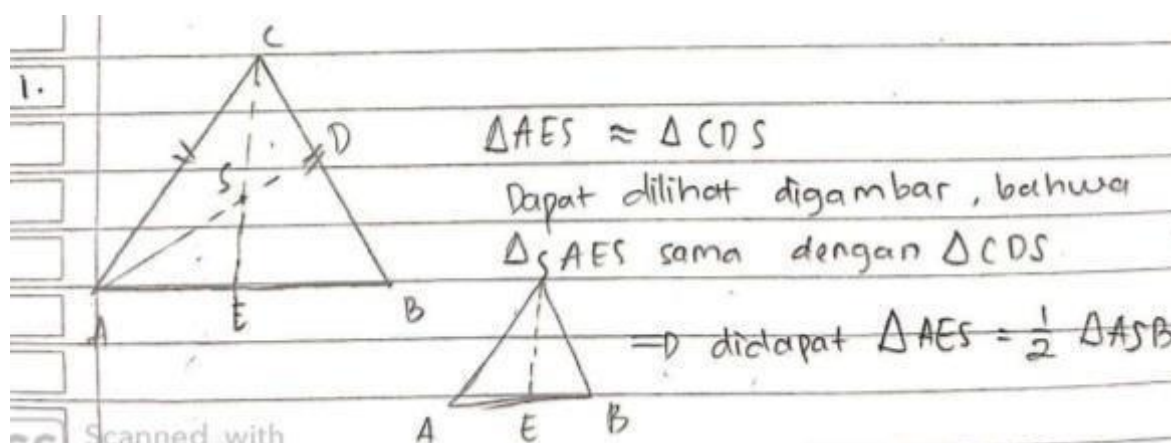 C
1.
D
ΔAES ≈ ΔCDS
S
Dapat dilihat digambar, bahwa
ΔAES sama dengan ΔCDS
A
E
B
S
⇒ didapat ΔAES = 1/2 ΔASB
A
E
B
Scanned with